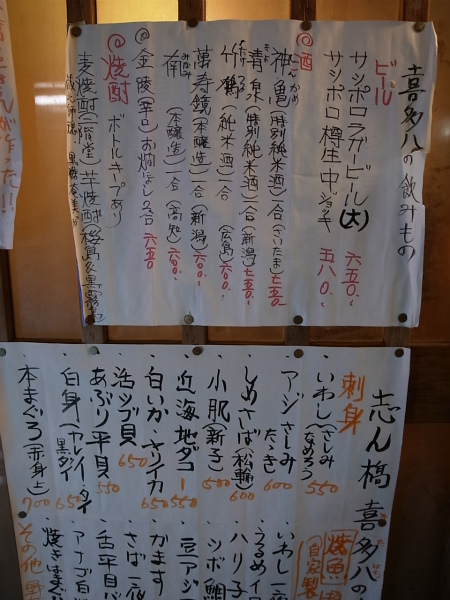 喜多八の飲みもの
ビール
サッポロラガービール(大) 六五〇.
サッポロ樽生中ジョッキ 五八〇.
◎酒
神亀(特別純米酒)一合(さいたま)七五〇
青泉(特別純米酒)一合(新潟)七五〇.
竹鶴(純米酒)一合(広島)六〇〇.
萬寿鏡(本醸造)一合(新潟)六〇〇.
南(本醸造)一合(高知)六〇〇.
金陵(辛口)お燗によし2合 六五〇
◎焼酎 ボトルキープあり
麦焼酎(二階堂)芋焼酎(桜島&黒霧島)
志ん橋喜多八の
刺身
・いわし(さしみ なめろう) 550
・アジ さしみ たゝき 600
・しめさば(松輪) 600
・小肌(新子) 500
・近海地ダコ 550
・白いか・スルイカ 650
・活ツブ貝 650
・あぶり平貝 550
・白身(カレイ・タイ 黒ダイ) 650
・本まぐろ(赤身上) 700
焼魚
自家製
・いわし一夜
・うるめイワ
・ハリ子
・シボ鯛
・豆アジ
・かます
・さば一夜
・舌平目
・アナゴ白
・焼きはまぐ
その他